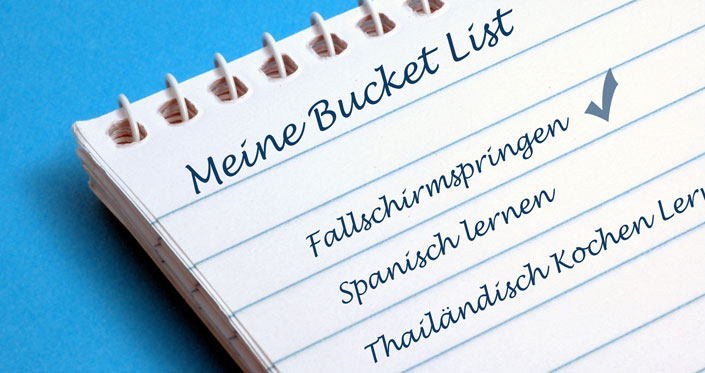 Meine Bucket List
Fallschirmspringen ✓
Spanisch lernen
Thailändisch Kochen